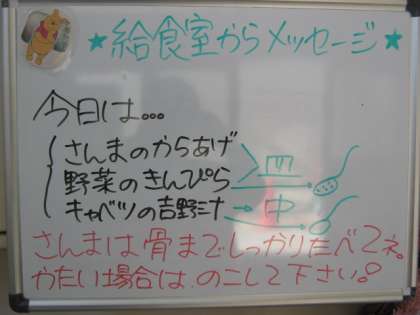 ★給食室からメッセージ★
今日は...
さんまのからあげ
野菜のきんぴら 皿
キャベツの吉野汁 → 中
さんまは骨までしっかりたべてネ。
かたい場合は、のこして下さい。